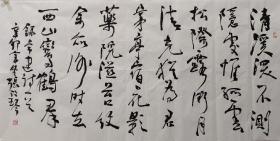 清溪深不测
隐处惟孤云
松际露微月
清光犹为君
茅亭宿花影
药院滋苔纹
余亦谢时去
西山鸾鹤群
录常建诗一首